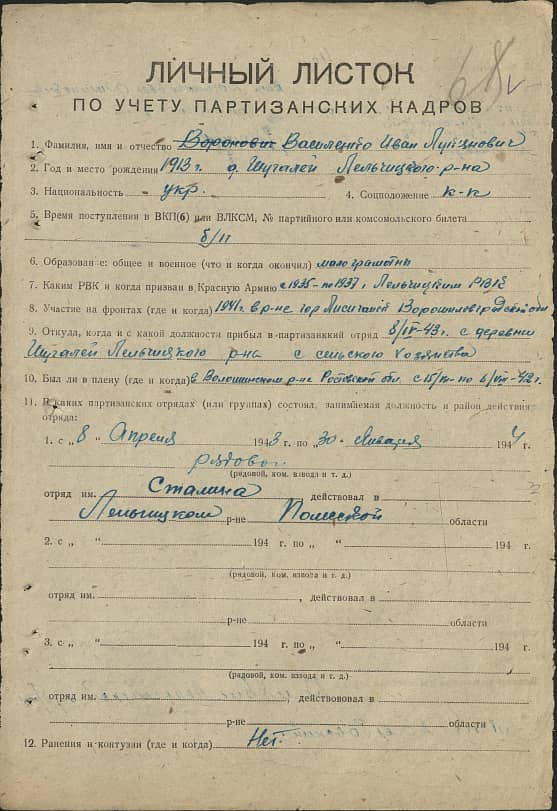 68 v
ЛИЧНЫЙ ЛИСТОК
ПО УЧЕТУ ПАРТИЗАНСКИХ КАДРОВ
1. Фамилия, имя и отчество Воронович Василенко Иван
2. Год и место рождения 1913 г. д. Шугалей Лельчицкого р-на
3. Национальность укр. 4. Соцположение к-к
5. Время поступления в ВКП(б) или ВЛКСМ, № партийного или комсомольского билета
б/п
6. Образование: общее и военное (что и когда окончил) малограмотн
7. Каким РВК и когда призван в Красную Армию с 1935-по 1937 г. Лельчицким РВК
8. Участие на фронтах (где и когда) 1941 г. в р-не гор Ворошиловградской обл
9. Откуда, когда и с какой должности прибыл в партизанский отряд 8/IV-43 г. с деревни
Шугалей Лельчицкого р-на с сельского хозяйства
10. Был ли в плену (где и когда) в Волошинском р-не Ростовской обл. с по
11. В каких партизанских отрядах (или группах) состоял, занимаемая должность и район действия
отряда:
1. с „ 8 “ Апреля 1943 г. по „ 30 “ Января 1944 г.
рядовой
(рядовой, ком. взвода и т. д.)
отряд им. Сталина, действовал в
Лельчицком р-не Полесской области
2. с „ “ 194 г. по „ “ 194 г.
(рядовой, ком. взвода и т. д.)
отряд им. , действовал в
р-не области
3. с „ “ 194 г. по „ “ 194 г.
(рядовой, ком. взвода и т. д.)
отряд им. , действовал в
р-не области
12. Ранения и контузии (где и когда) Нет.